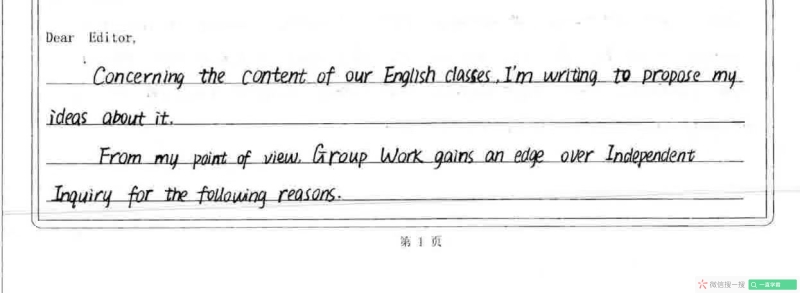 Dear Editor,
Concerning the content of our English classes, I'm writing to propose my
ideas about it.
From my point of view, Group Work gains an edge over Independent
Inquiry for the following reasons.
第 1 页
微信搜一搜 一盏学園